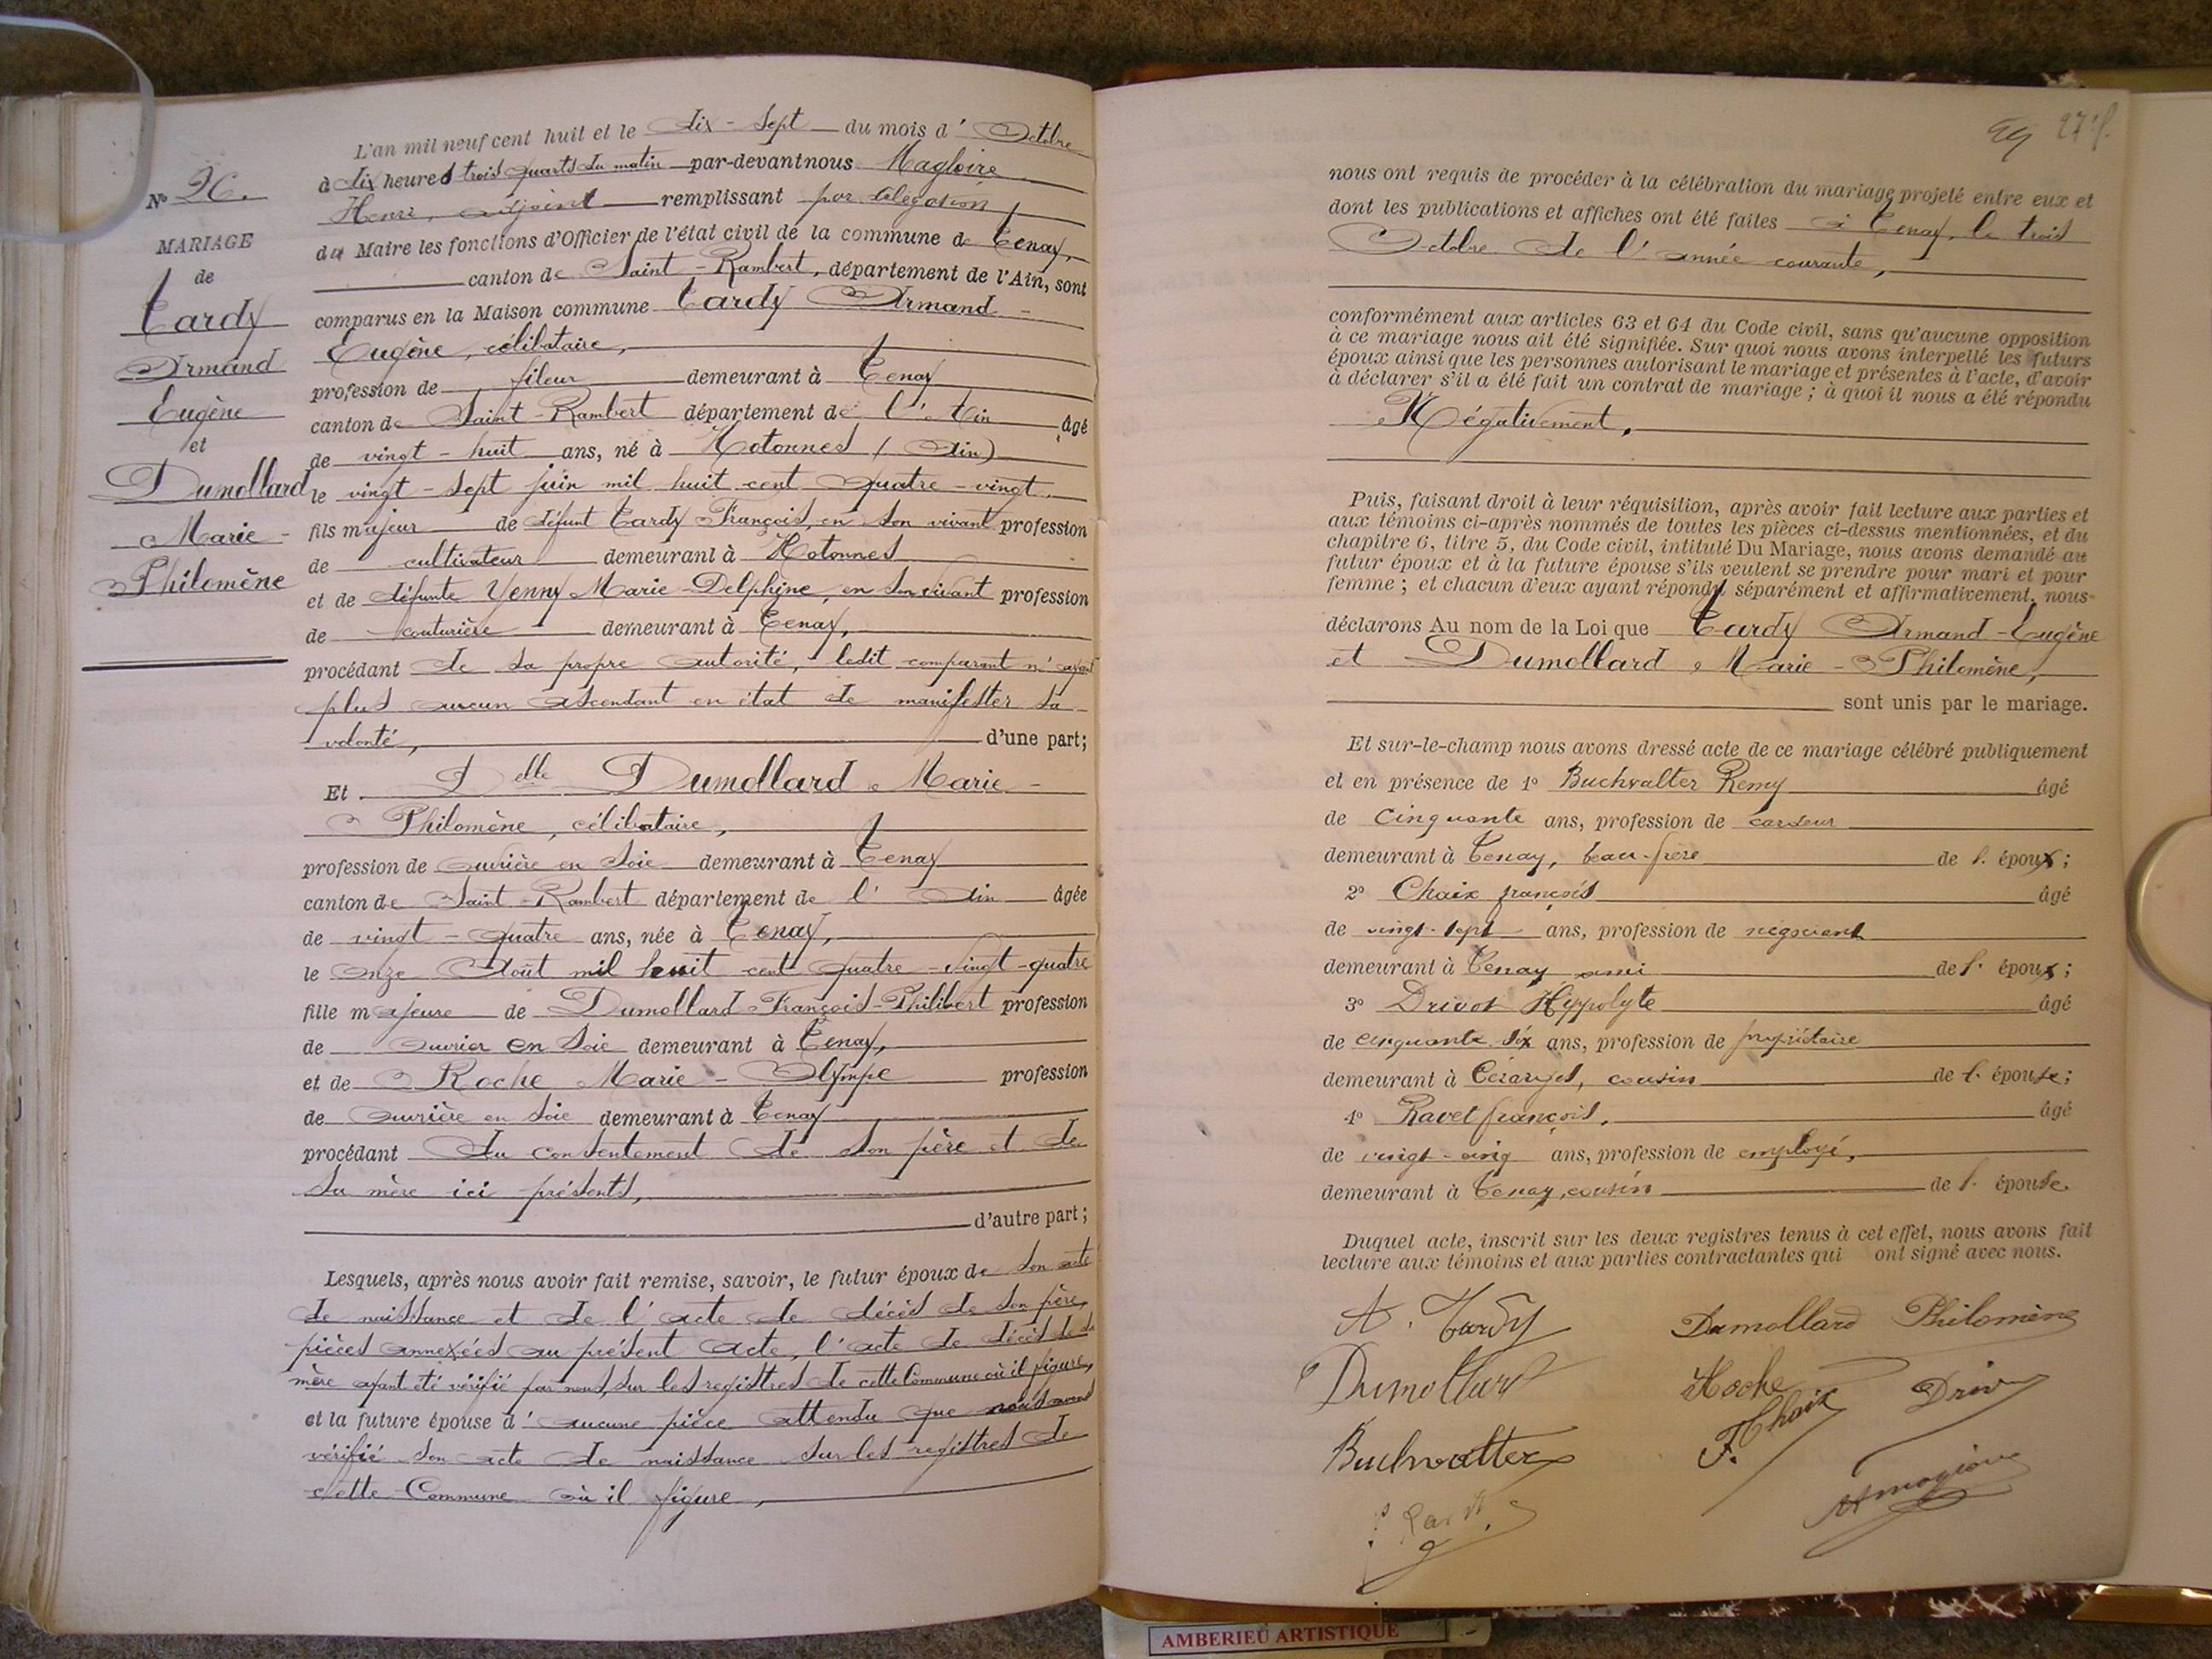 L'an mil neuf cent huit et le dix-sept du mois d'Octobre
à dix heures trois quarts du matin par-devant nous Magloire
Henri, adjoint remplissant par délégation
du Maire les fonctions d'Officier de l'état civil de la commune de Tenay,
canton de Saint-Rambert, département de l'Ain, sont
comparus en la Maison commune Tardy Armand
Eugène, célibataire,
profession de fileur demeurant à Tenay
canton de Saint-Rambert département de l'Ain âgé
de vingt-huit ans, né à Hotonnes (Ain)
le vingt-sept juin mil huit cent quatre-vingt
fils majeur de défunt Tardy François, en son vivant profession
de cultivateur demeurant à Hotonnes
et de défunte Yenny Marie-Delphine, en son vivant profession
de couturière demeurant à Tenay,
procédant de sa propre autorité, ledit comparant n'ayant
plus aucun ascendant en état de manifester sa
volonté, d'une part;
Et Delle Dumollard Marie-
Philomène, célibataire,
profession de ouvrière en soie demeurant à Tenay
canton de Saint-Rambert département de l'Ain âgée
de vingt-quatre ans, née à Tenay,
le onze Août mil huit cent quatre-vingt-quatre
fille majeure de Dumollard François-Philibert profession
de ouvrier en soie demeurant à Tenay,
et de Roche Marie-Olympe profession
de ouvrière en soie demeurant à Tenay
procédant du consentement de son père et de
sa mère ici présents,
d'autre part;
Lesquels, après nous avoir fait remise, savoir, le futur époux de son acte
de naissance et de l'acte de décès de son père,
pièces annexées au présent acte, l'acte de décès de sa
mère ayant été vérifié par nous, sur les registres de cette Commune où il figure,
et la future épouse d'aucune pièce attendu que nous avons
vérifié son acte de naissance sur les registres de
cette Commune où il figure,
N° 26.
MARIAGE
de
Tardy
Armand
Eugène
et
Dumollard
Marie-
Philomène
27 f.
nous ont requis de procéder à la célébration du mariage projeté entre eux et
dont les publications et affiches ont été faites à Tenay, le trois
Octobre de l'année courante,
conformément aux articles 63 et 64 du Code civil, sans qu'aucune opposition
à ce mariage nous ait été signifiée. Sur quoi nous avons interpellé les futurs
époux ainsi que les personnes autorisant le mariage et présentes à l'acte, d'avoir
à déclarer s'il a été fait un contrat de mariage ; à quoi il nous a été répondu
Négativement.
Puis, faisant droit à leur réquisition, après avoir fait lecture aux parties et
aux témoins ci-après nommés de toutes les pièces ci-dessus mentionnées, et du
chapitre 6, titre 5, du Code civil, intitulé Du Mariage, nous avons demandé au
futur époux et à la future épouse s'ils veulent se prendre pour mari et pour
femme ; et chacun d'eux ayant répondu séparément et affirmativement, nous
déclarons Au nom de la Loi que Tardy Armand-Eugène
et Dumollard Marie-Philomène,
sont unis par le mariage.
Et sur-le-champ nous avons dressé acte de ce mariage célébré publiquement
et en présence de 1° Buchwalter Remy âgé
de cinquante ans, profession de cardeur
demeurant à Tenay, beau-frère de l'époux;
2° Chaix françois âgé
de vingt-sept ans, profession de négociant
demeurant à Tenay ami de l'époux;
3° Drivot Hippolyte âgé
de cinquante six ans, profession de propriétaire
demeurant à cousin de l'épouse;
4° Ravet françois, âgé
de vingt-cinq ans, profession de employé,
demeurant à Tenay, cousin de l'épouse
Duquel acte, inscrit sur les deux registres tenus à cet effet, nous avons fait
lecture aux témoins et aux parties contractantes qui ont signé avec nous.
A. Tardy Dumollard Philomène
Dumollard Roche
F. Chaix Drivot
Buchwalter
AMBERIEU ARTISTIQUE